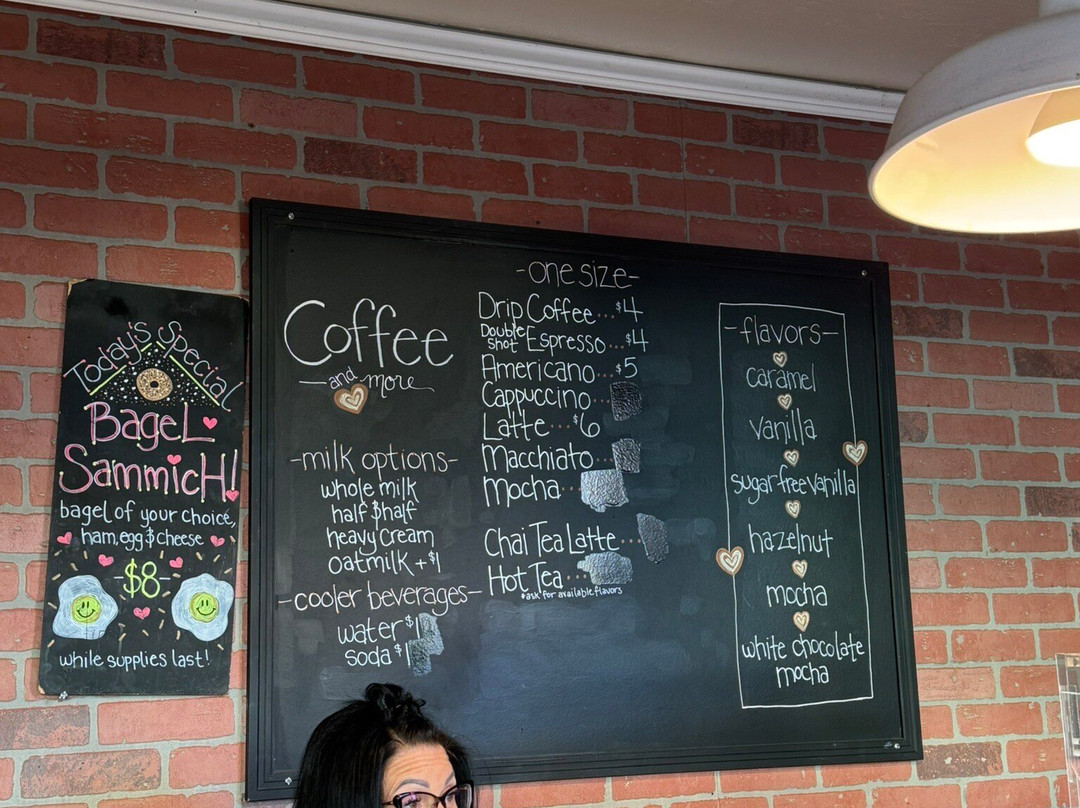 Today's Special
BageL
SammicH!
bagel of your choice,
ham, egg & cheese
-$8-
while supplies last!
Coffee
-and more
-milk options-
whole milk
half & half
heavy cream
oatmilk +$1
-cooler beverages-
water $1
soda $1
-one size-
Drip Coffee... $4
Double shot Espresso... $4
Americano... $5
Cappuccino...
Latte... $6
Macchiato..
Mocha...
Chai Tea Latte...
Hot Tea...
*ask for available flavors
-flavors-
caramel
vanilla
sugar free vanilla
hazelnut
mocha
white chocolate
mocha